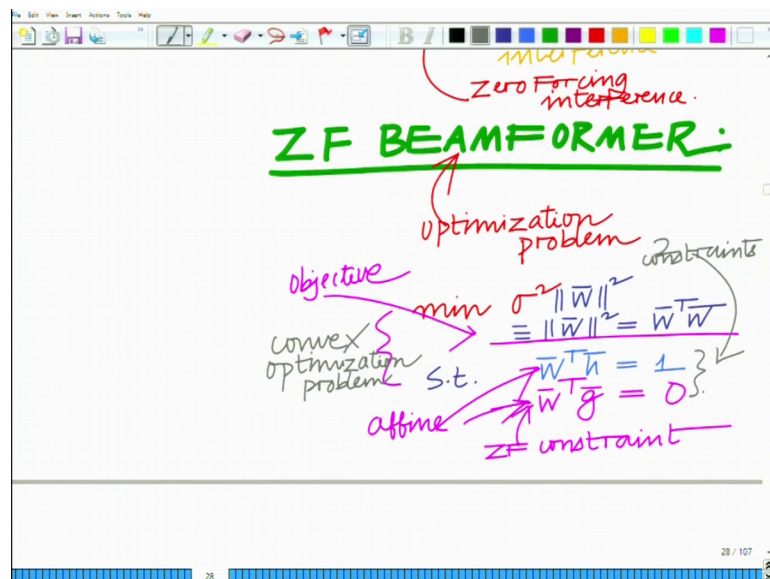 File Edit View Insert Actions Tools Help
B I
interference
Zero Forcing
interference.
ZF BEAMFORMER.
optimization
problem
constraints
objective
min σ² ‖w̄‖²
≡ ‖w̄‖² = w̄ᵀw̄
convex
optimization
problem
s.t. w̄ᵀh̄ = 1
w̄ᵀḡ = 0
affine
ZF constraint
28 / 107
28